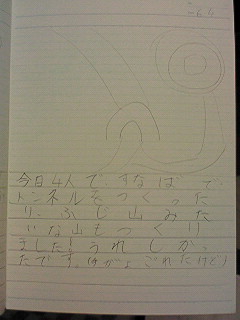 今日4人で、すなばで、
トンネルをつくった
り、ふじ山みた
いな山もつくり
ました！うれしかっ
たです。(ゆがよごれたけど)